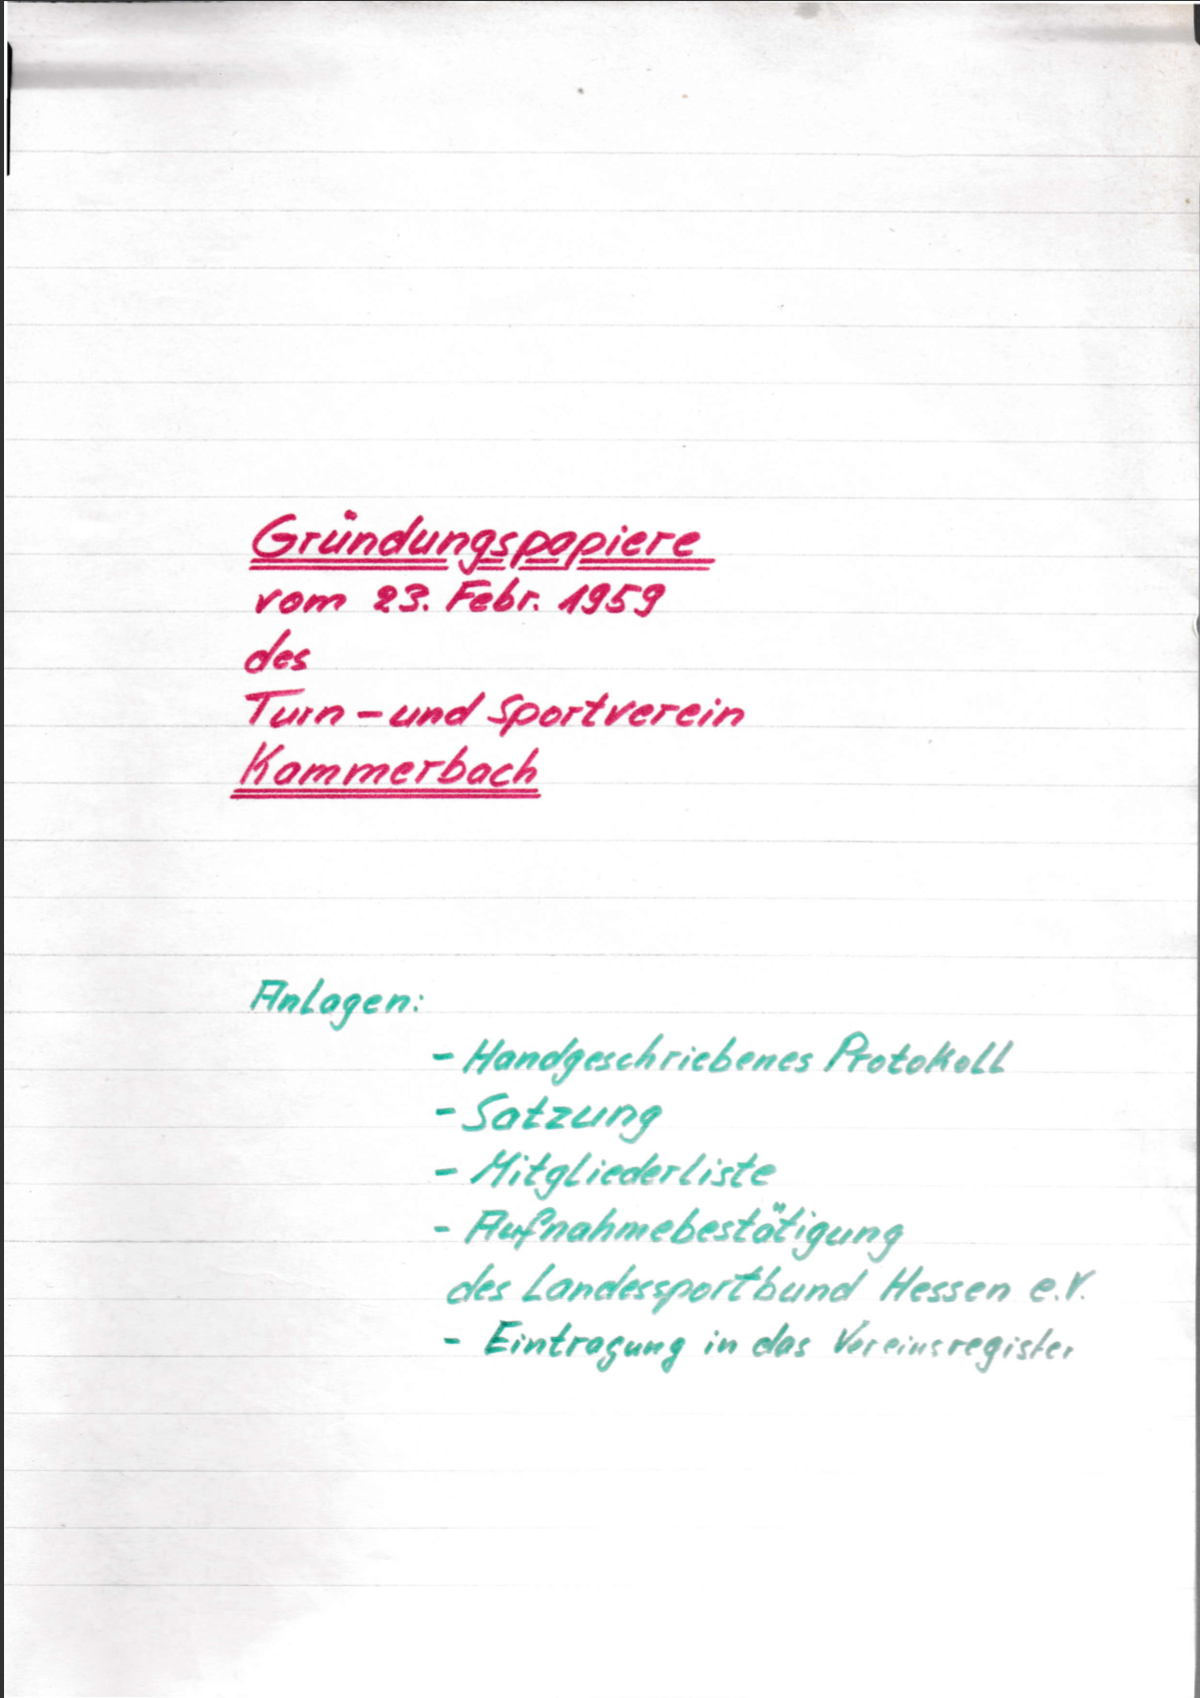 Gründungspapiere
vom 23. Febr. 1959
des
Turn-und Sportverein
Kammerbach
Anlagen:
- Handgeschriebenes Protokoll
- Satzung
- Mitgliederliste
- Aufnahmebestätigung
des Landessportbund Hessen e.V.
- Eintragung in das Vereinsregister